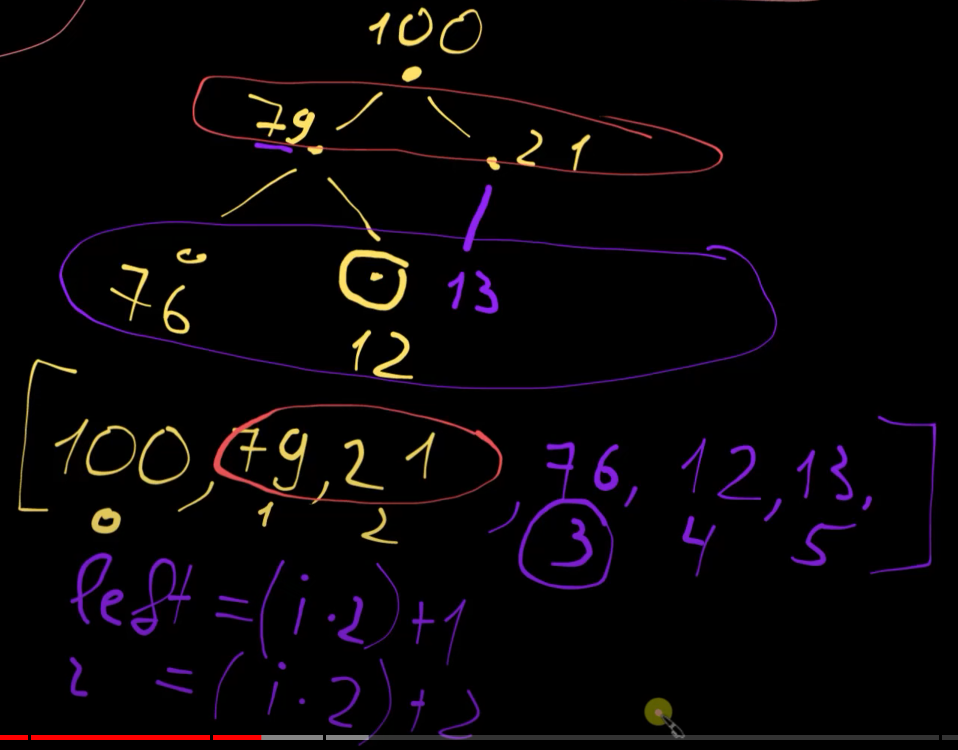 100
79 21
76 12 13
[100, 79, 21, 76, 12, 13, ]
0 1 2 3 4 5
left = (i · 2) + 1
r = (i · 2) + 2